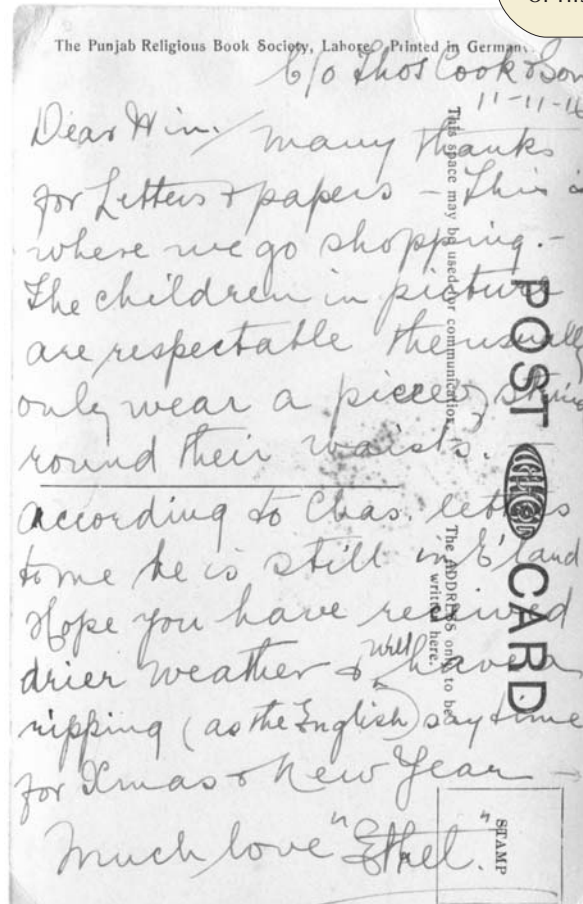 The Punjab Religious Book Society, Lahore. Printed in Germany.
C/o Thos Cook & Son
11-11-16
Dear Win. / Many thanks
for Letters & papers – This is
where we go shopping. –
The children in picture
are respectable the usually
only wear a piece of string
round their waists.
according to Chas. letters
to me he is still in E'land
Hope you have received
drier weather & will have a
ripping (as the English) say time
for Xmas & New Year –
Much love "Ethel."
This space may be used for communication.
The ADDRESS only to be
written here.
POST CARD
STAMP